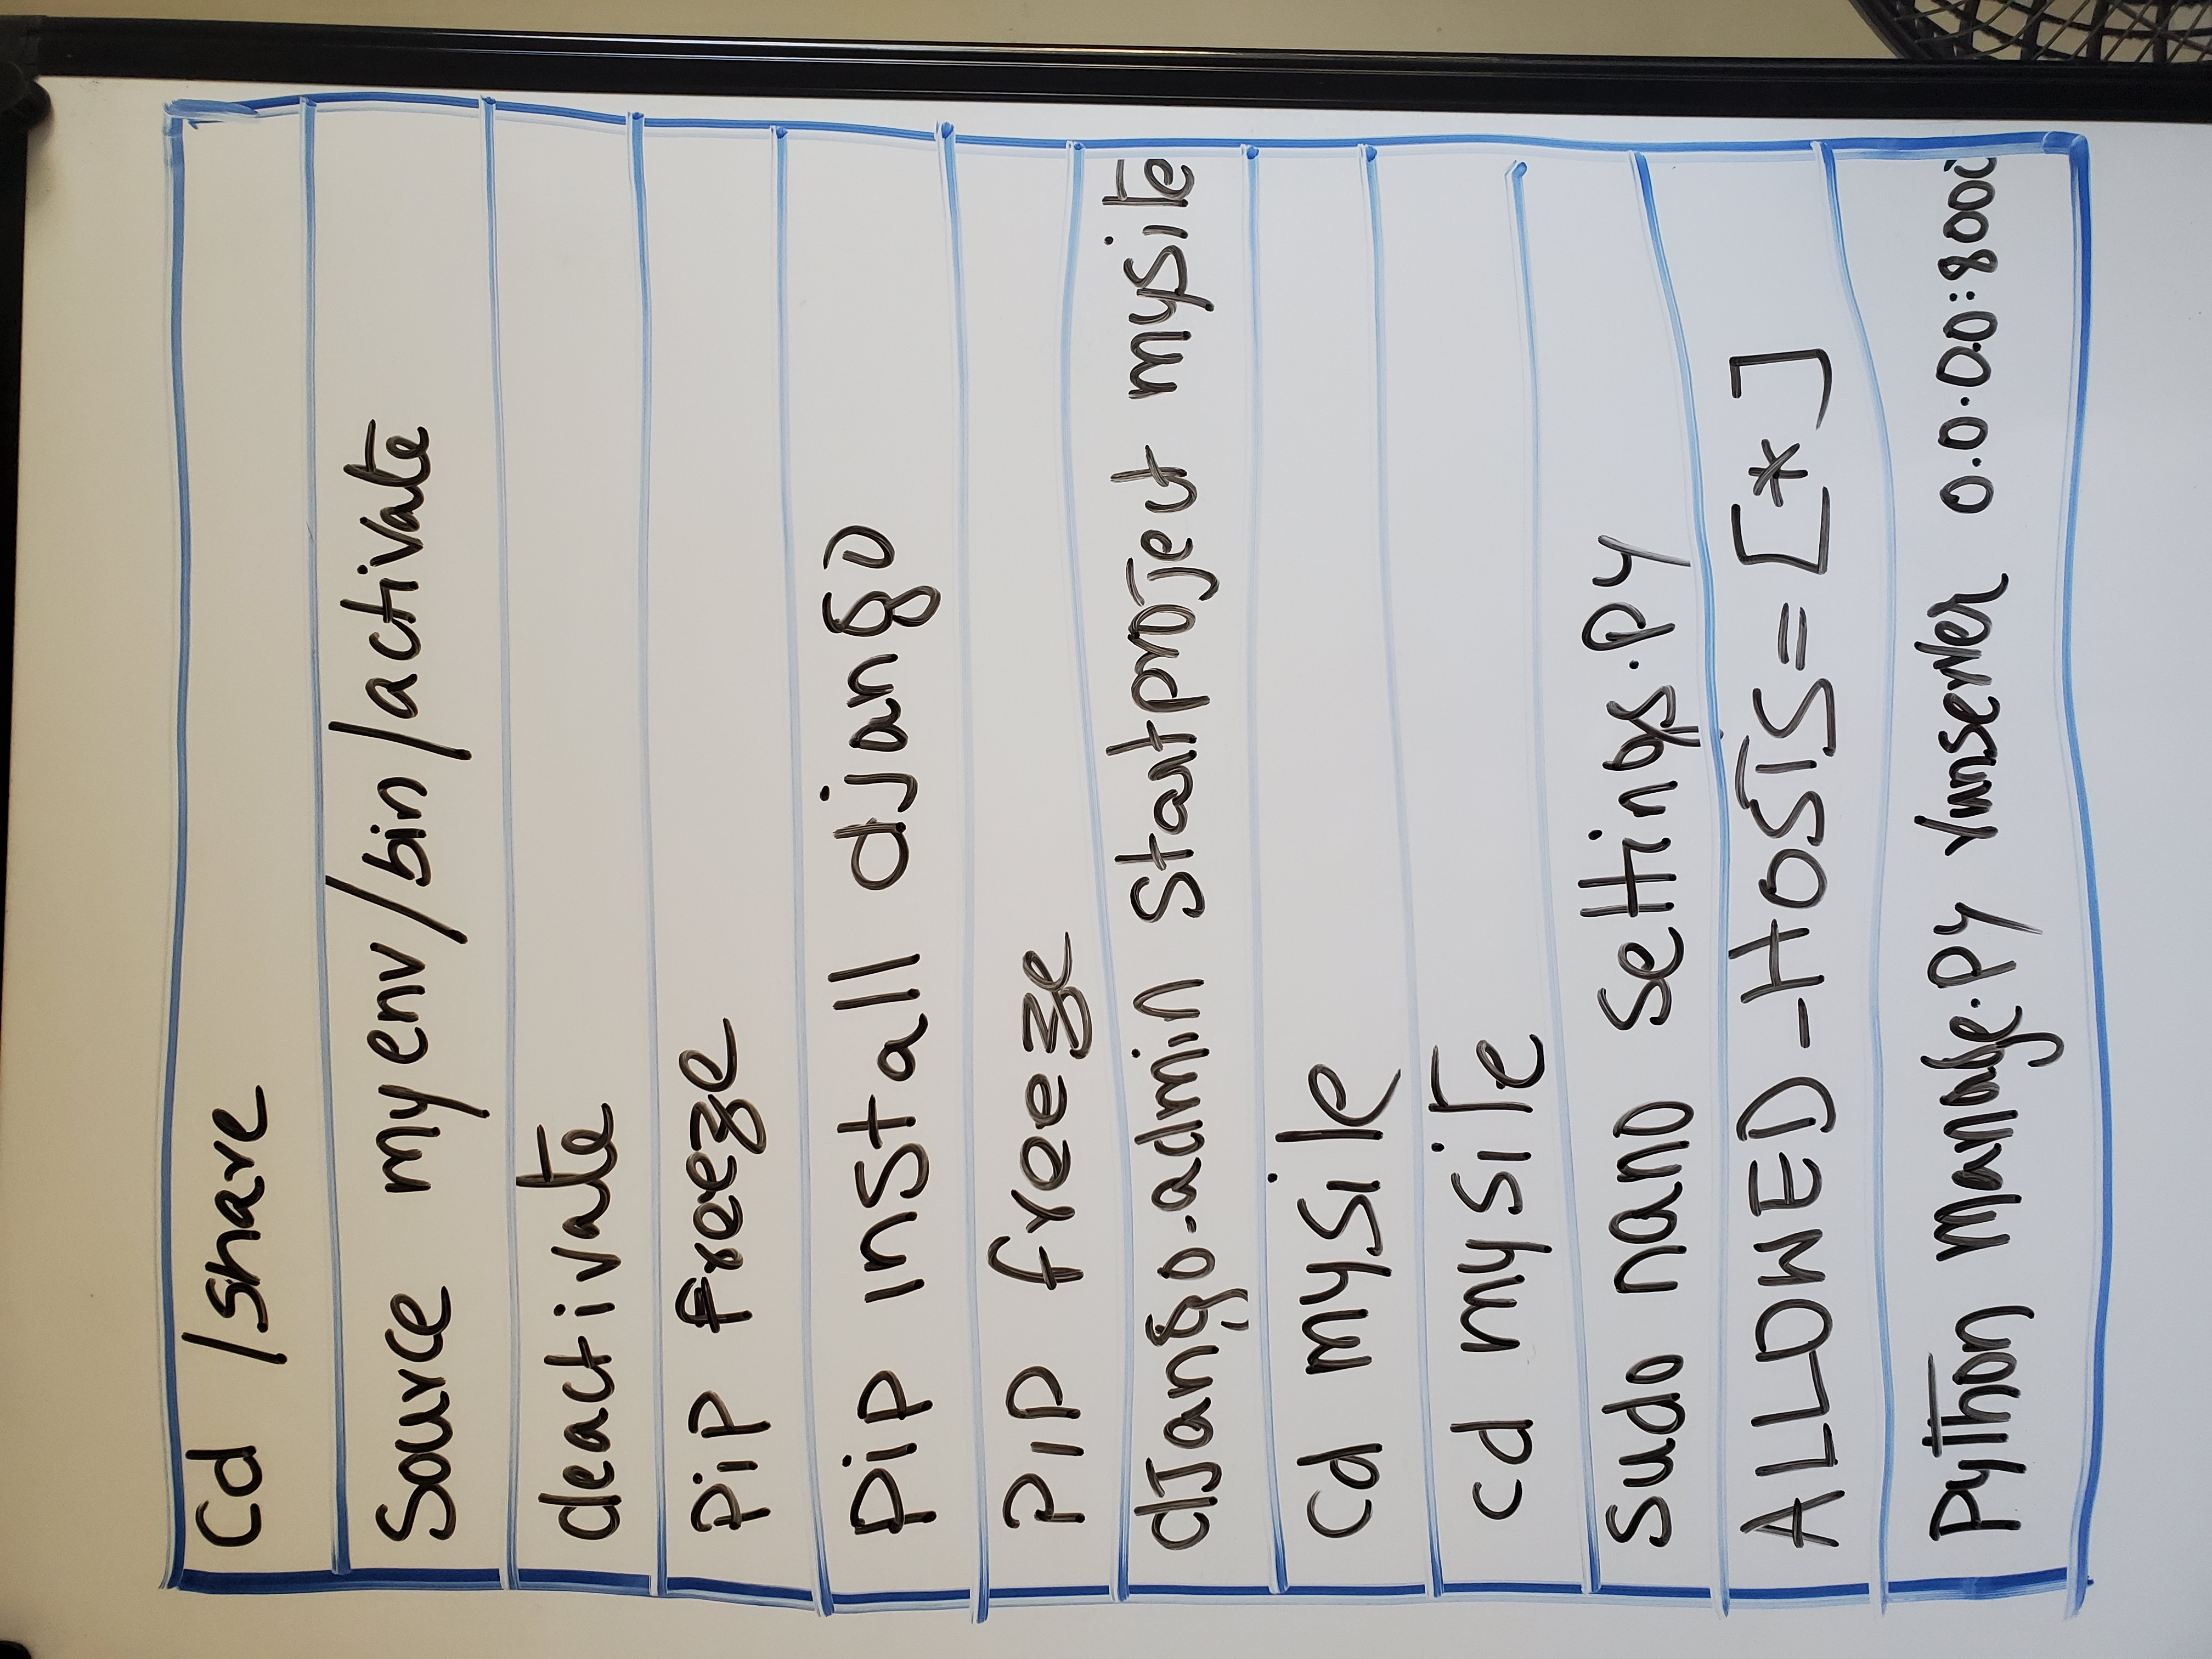 cd /share
Source myenv/bin/activate
deactivate
pip freeze
pip install django
pip freeze
django-admin startproject mysite
cd mysite
cd mysite
sudo nano settings.py
ALLOWED_HOSTS=[*]
Python manage.py runserver 0.0.0.0:8000